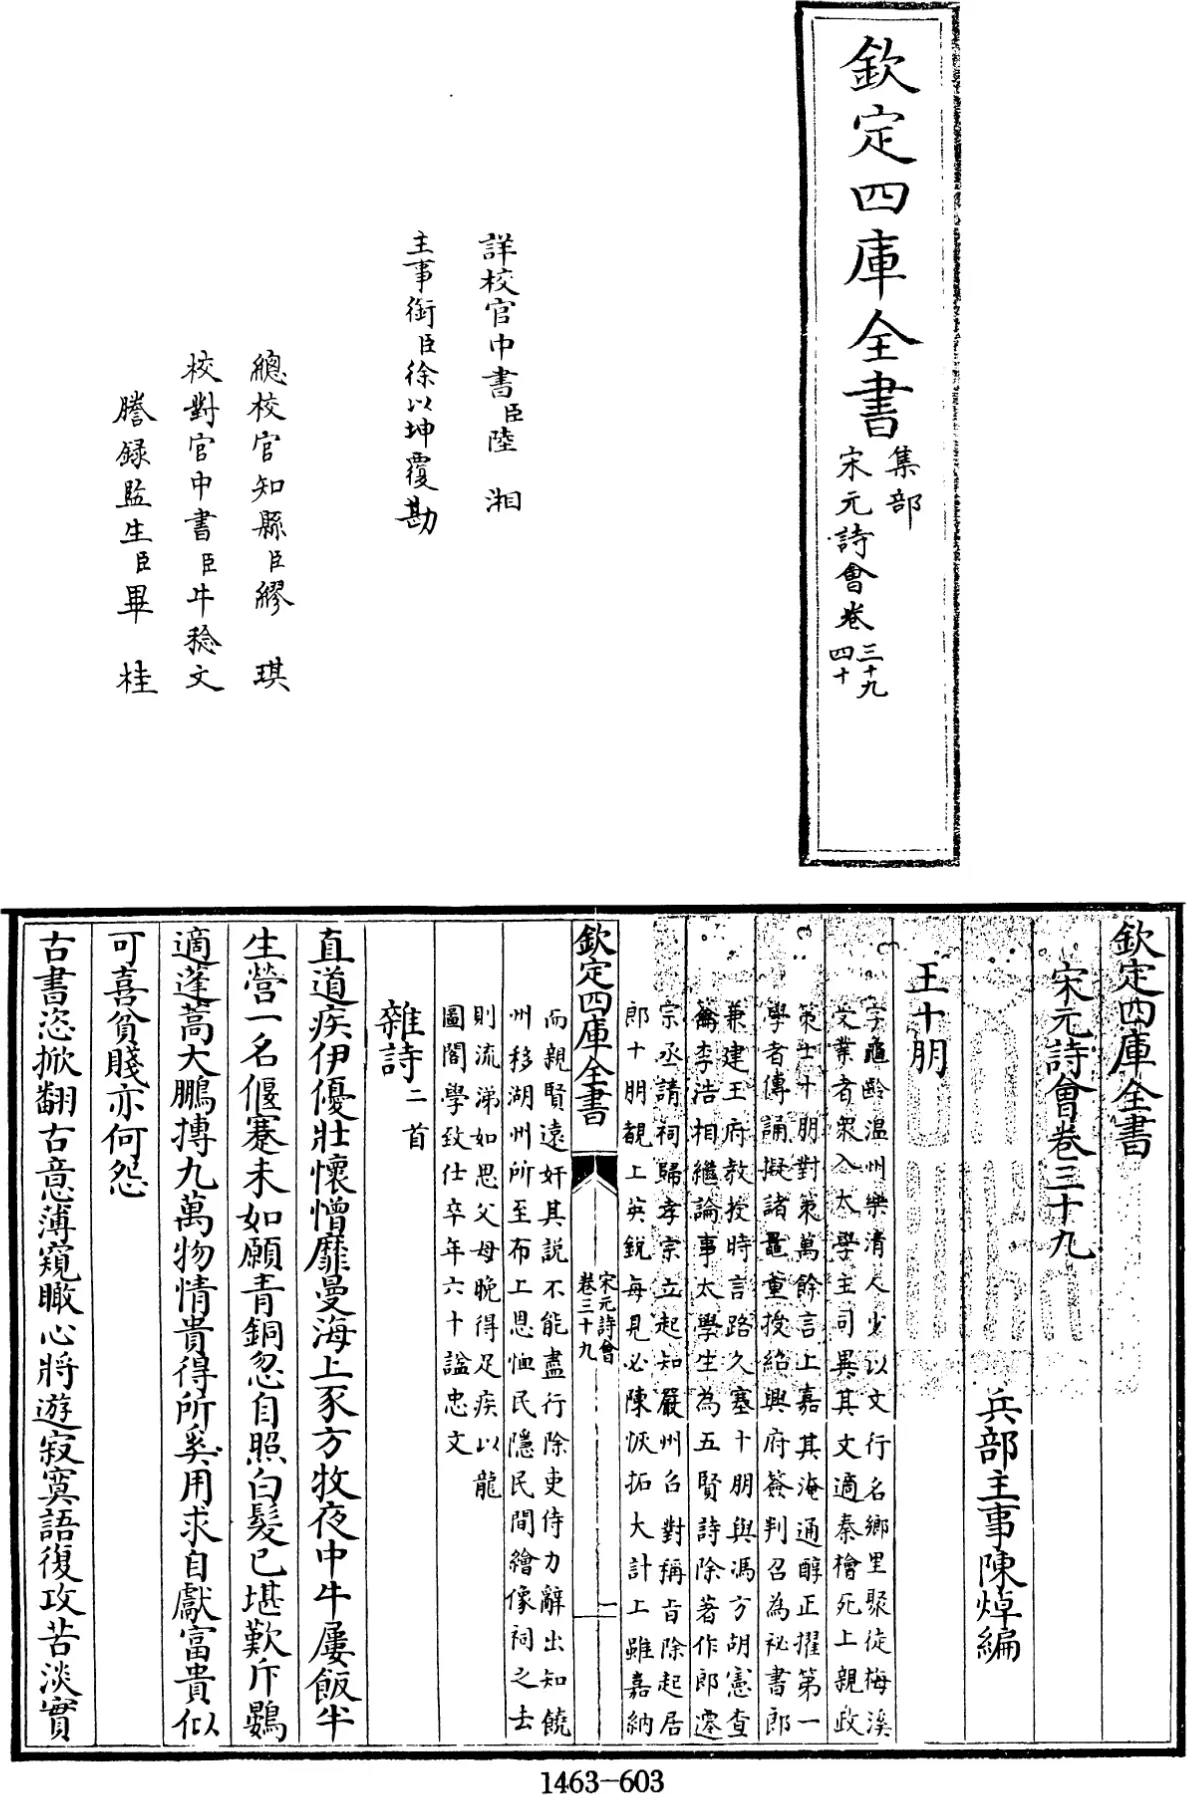 欽定四庫全書
集部
宋元詩會卷
三十九
四十
詳校官中書臣陸湘
主事銜臣徐以坤覆勘
總校官知縣臣繆琪
校對官中書臣牛稔文
謄録監生臣畢桂
欽定四庫全書
宋元詩會卷三十九
兵部主事陳焯編
王十朋
字龜齡温州樂清人少以文行名鄉里聚徒梅溪
受業者衆入太學主司異其文適秦檜死上親政
策士十朋對策萬餘言上嘉其淹通醇正擢第一
學者傳誦擬諸鼂董授紹興府簽判召為祕書郎
兼建王府教授時言路久塞十朋與馮方胡憲查
籥李浩相繼論事太學生為五賢詩除著作郎遷
宗丞請祠歸孝宗立起知嚴州召對稱旨除起居
郎十朋覩上英銳每見必陳恢拓大計上雖嘉納
欽定四庫全書
宋元詩會
卷三十九
一
而親賢遠奸其説不能盡行除吏侍力辭出知饒
州移湖州所至布上恩恤民隱民間繪像祠之去
則流涕如思父母晚得足疾以龍
圖閣學致仕卒年六十諡忠文
雜詩二首
直道疾伊優壯懷憎靡曼海上豕方牧夜中牛屢飯半
生營一名偃蹇未如願青銅忽自照白髮已堪歎斥鷃
適蓬蒿大鵬摶九萬物情貴得所奚用求自獻富貴似
可喜貧賤亦何怨
古書恣掀翻古意薄窺瞰心將遊寂寞語復攻苦淡實
1463-603